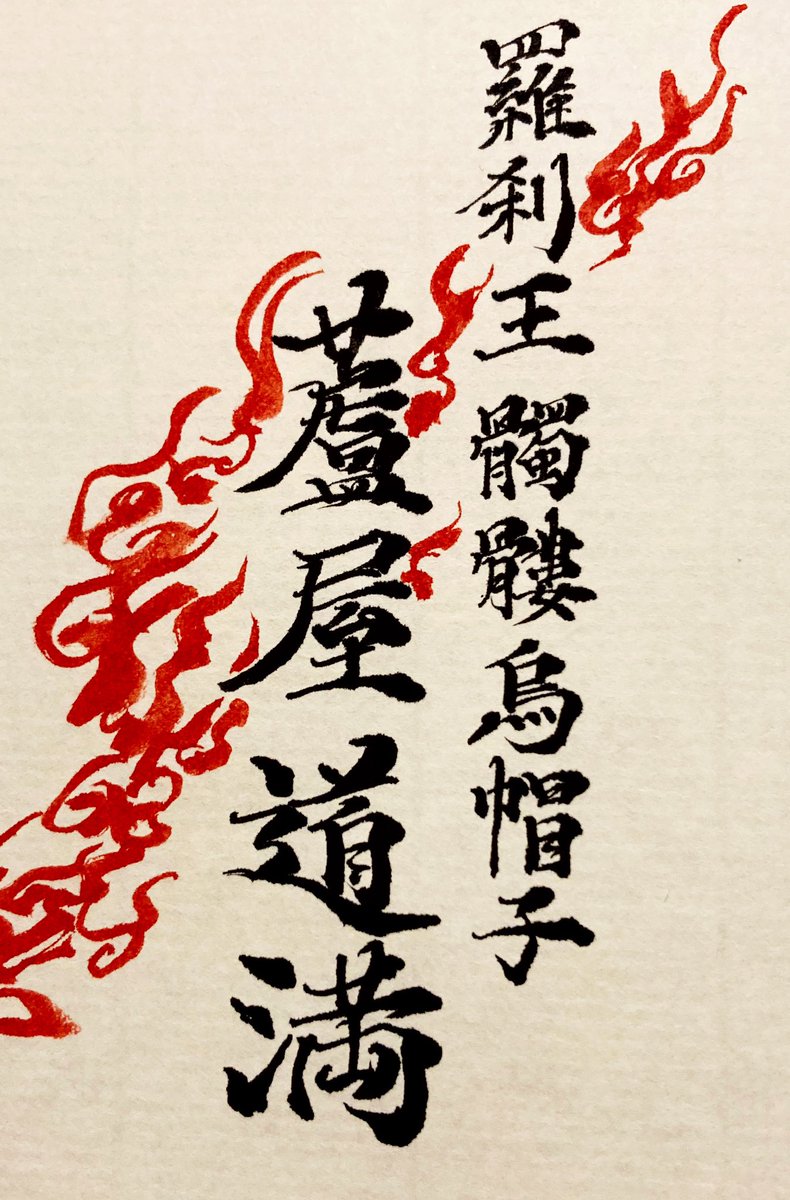 羅刹王髑髏烏帽子
蘆屋道満